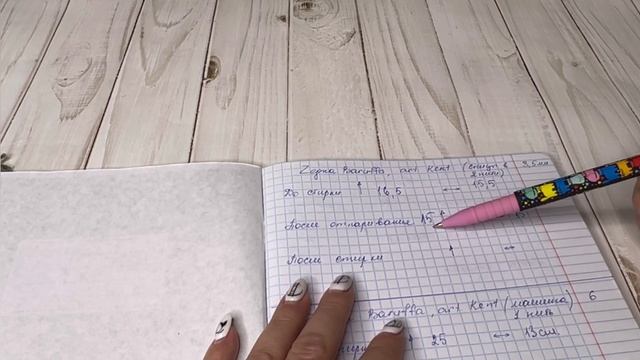 Zegna Baruffa, art. Kent (спицы 2 нити) 3,5 мм
До стирки ↑ 16,5 ↔ 15,5
После отпаривание 15 ↑ 15
После стирки ↑ ↔
Baruffa, art Kent (машина) 6
1 нить
стирки ↑ 25 ↔ 13 см